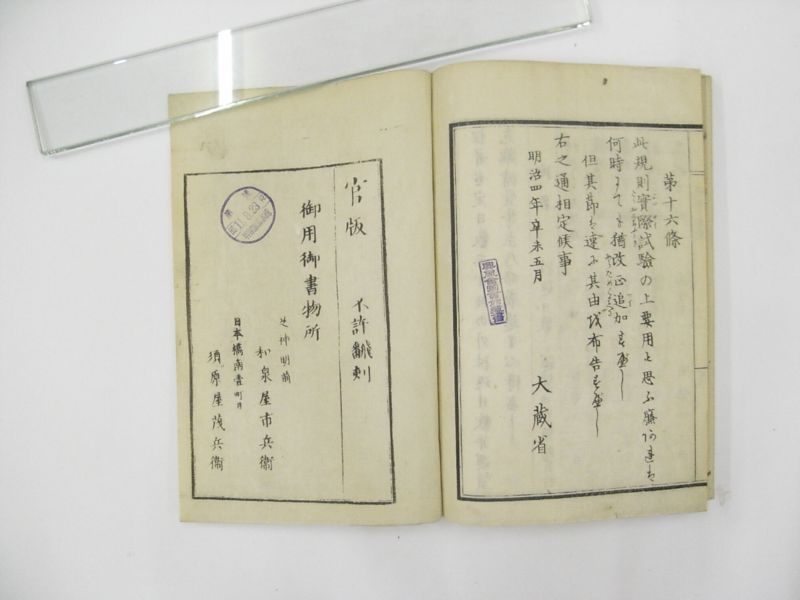 第十六條
此規則實際試驗の上要用と思ふ廉
何時にても猶改正追加すべし
但其節は速に其由を布告すべし
右之通相定候事
明治四年辛未五月
大藏省
官版
不許翻刻
御用御書物所
芝神明前
和泉屋市兵衛
日本橋南壹町目
須原屋茂兵衛